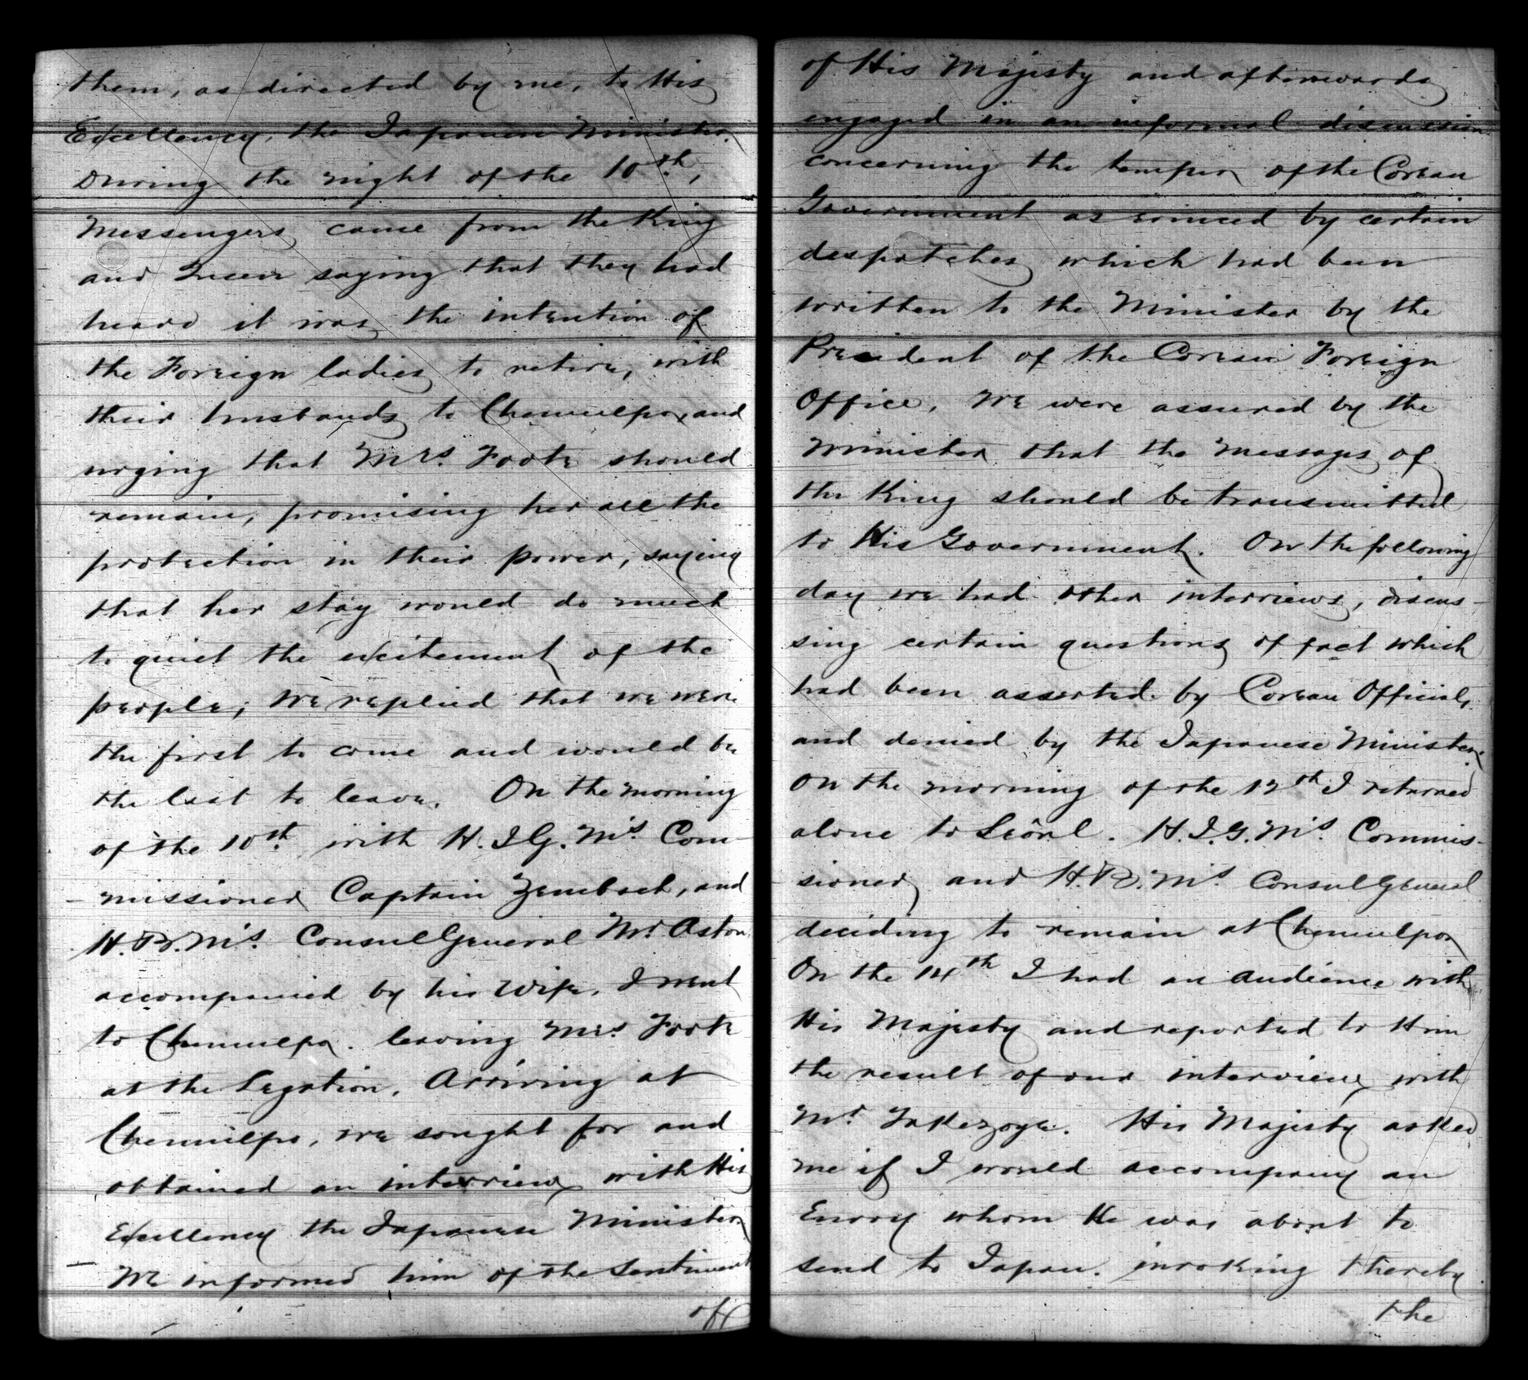 them, as directed by me, to His
Excellency, the Japanese Minister
During the night of the 10th,
Messengers came from the King
and Queen saying that they had
heard it was the intention of
the Foreign ladies to retire, with
their husbands to Chemulpo, and
urging that Mrs. Foote should
remain, promising her all the
protection in their power, saying
that her stay would do much
to quiet the excitement of the
people; We replied that we were
the first to come and would be
the last to leave. On the morning
of the 10th with H.I.G.M's Com-
missioner Captain Zembsch, and
H.B.M's. Consul General Mr. Aston,
accompanied by his Wife, I went
to Chemulpo. leaving Mrs Foote
at the Legation. Arriving at
Chemulpo, we sought for and
obtained an interview with His
Excellency the Japanese Minister
We informed him of the Sentiment
of
of His Majesty and afterwards
engaged in an informal discussion
concerning the temper of the Corean
Government as evinced by certain
despatches which had been
written to the Minister by the
President of the Corean Foreign
Office. We were assured by the
Minister that the Messages of
the King should be transmitted
to His Government. On the following
day we had other interviews, discus-
sing certain questions of fact which
had been asserted by Corean Officials,
and denied by the Japanese Minister.
On the morning of the I returned
alone to Seoul. H.I.G.M's Commis-
sioner, and H.B.M's Consul General
deciding to remain at Chemulpo
On the 14th I had an audience with
His Majesty and reported to Him
the result of our interview with
Mr. Takezoye. His Majesty asked
me if I would accompany an
Envoy whom He was about to
send to Japan. invoking thereby
the